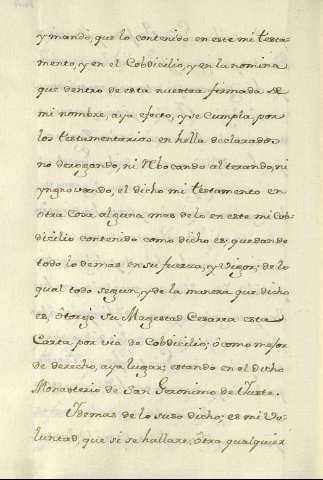 y mando, que lo contenido en este mi testa-
mento, y en el Cobdicilio, y en la nomina
que dentro de esta nuestra firmada de
mi nombre, aya efecto, y se cumpla, por
los testamentarios en hella declarados
no derogando, ni rebocando alterando, ni
ynnovando, el dicho mi testamento en
otra cosa alguna mas de lo en este mi Cob-
dicilio contenido como dicho es; quedando
todo lo demas en su fuerza, y vigor; de lo
qual todo segun, y de la manera que dicho
es, otorgo su Magestad Cesarea esta
Carta, por via de Cobdicilio; ò como mejor
de derecho, aya lugar; estando en el dicho
Monasterio de San Geronimo de Yuste.
Ydemas de lo suso dicho; es mi vo-
luntad, que si se hallare, ôtra qualquier